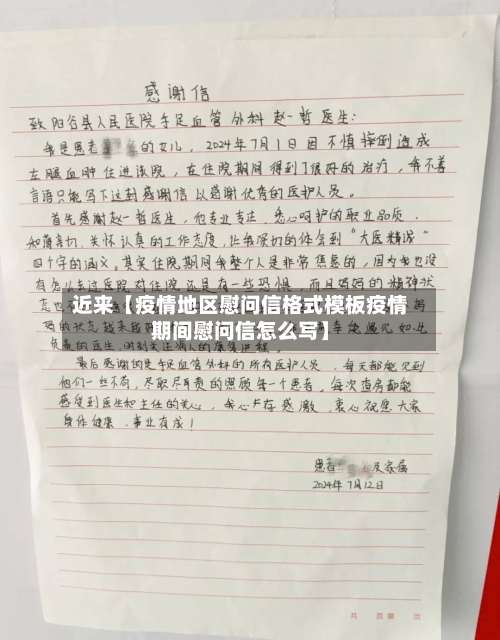 感谢信
致阳谷县人民医院手足血管外科赵一哲医生:
我是患者 的女儿, 2024年7月1日因不慎摔倒造成
左腿血肿住进该院, 在住院期间得到了很好的治疗, 我不善
言语只能写下这封感谢信以感谢优秀的医护人员。
首先感谢赵一哲医生, 他专业专注、悉心呵护的职业品质、
和蔼亲切、关怀认真的工作态度, 让我深切的体会到“大医精诚”
四个字的涵义。其实住院期间我整个人是非常焦急的, 因为我也没
有怎么去过医院对住院还是有一些恐惧, 而且妈妈的精神状
态也
近来【疫情地区慰问信格式模板疫情
期间慰问信怎么写】
妈的状态越来越
负责的医生, 时刻关注病人的康复进程。
最后感谢的是手足血管外科的所有医护人员, 每天都能见到
他们一丝不苟、尽职尽责的照顾每一个患者, 每次查房都能
感受到医生和主任的关心, 我心存感激, 衷心祝愿大家
身体健康, 事业有成!
患者 及家属
2024年7月12日
共 页第 页